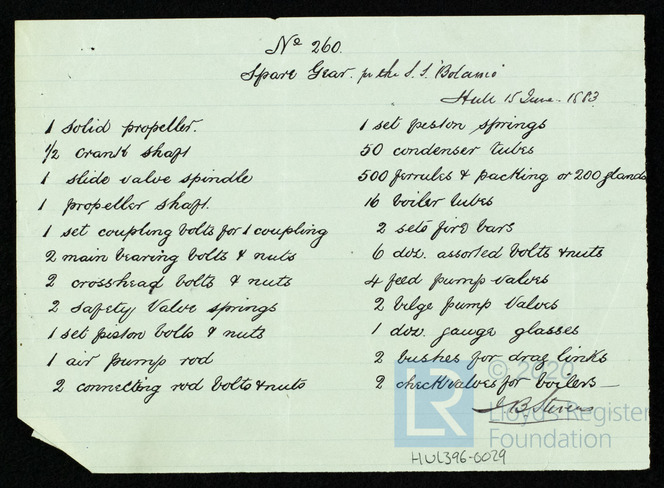 No 260.
Spare Gear. for the S.S. "Bolamo"
Hull 15 June. 1883.
1 solid propeller.
1/2 crank shaft
1 slide valve spindle
1 propeller shaft.
1 set coupling bolts for 1 coupling
2 main bearing bolts & nuts
2 crosshead bolts & nuts
2 safety valve springs
1 set piston bolts & nuts
1 air pump rod
2 connecting rod bolts & nuts
1 set piston springs
50 condenser tubes
500 ferrules & packing or 200 glands
16 boiler tubes
2 sets fire bars
6 doz. assorted bolts & nuts
4 feed pump valves
2 bilge pump valves
1 doz. gauge glasses
2 bushes for drag links
2 check valves for boilers
J B
© 2020
LR
Lloyd's Register
Foundation
HUL396-0029